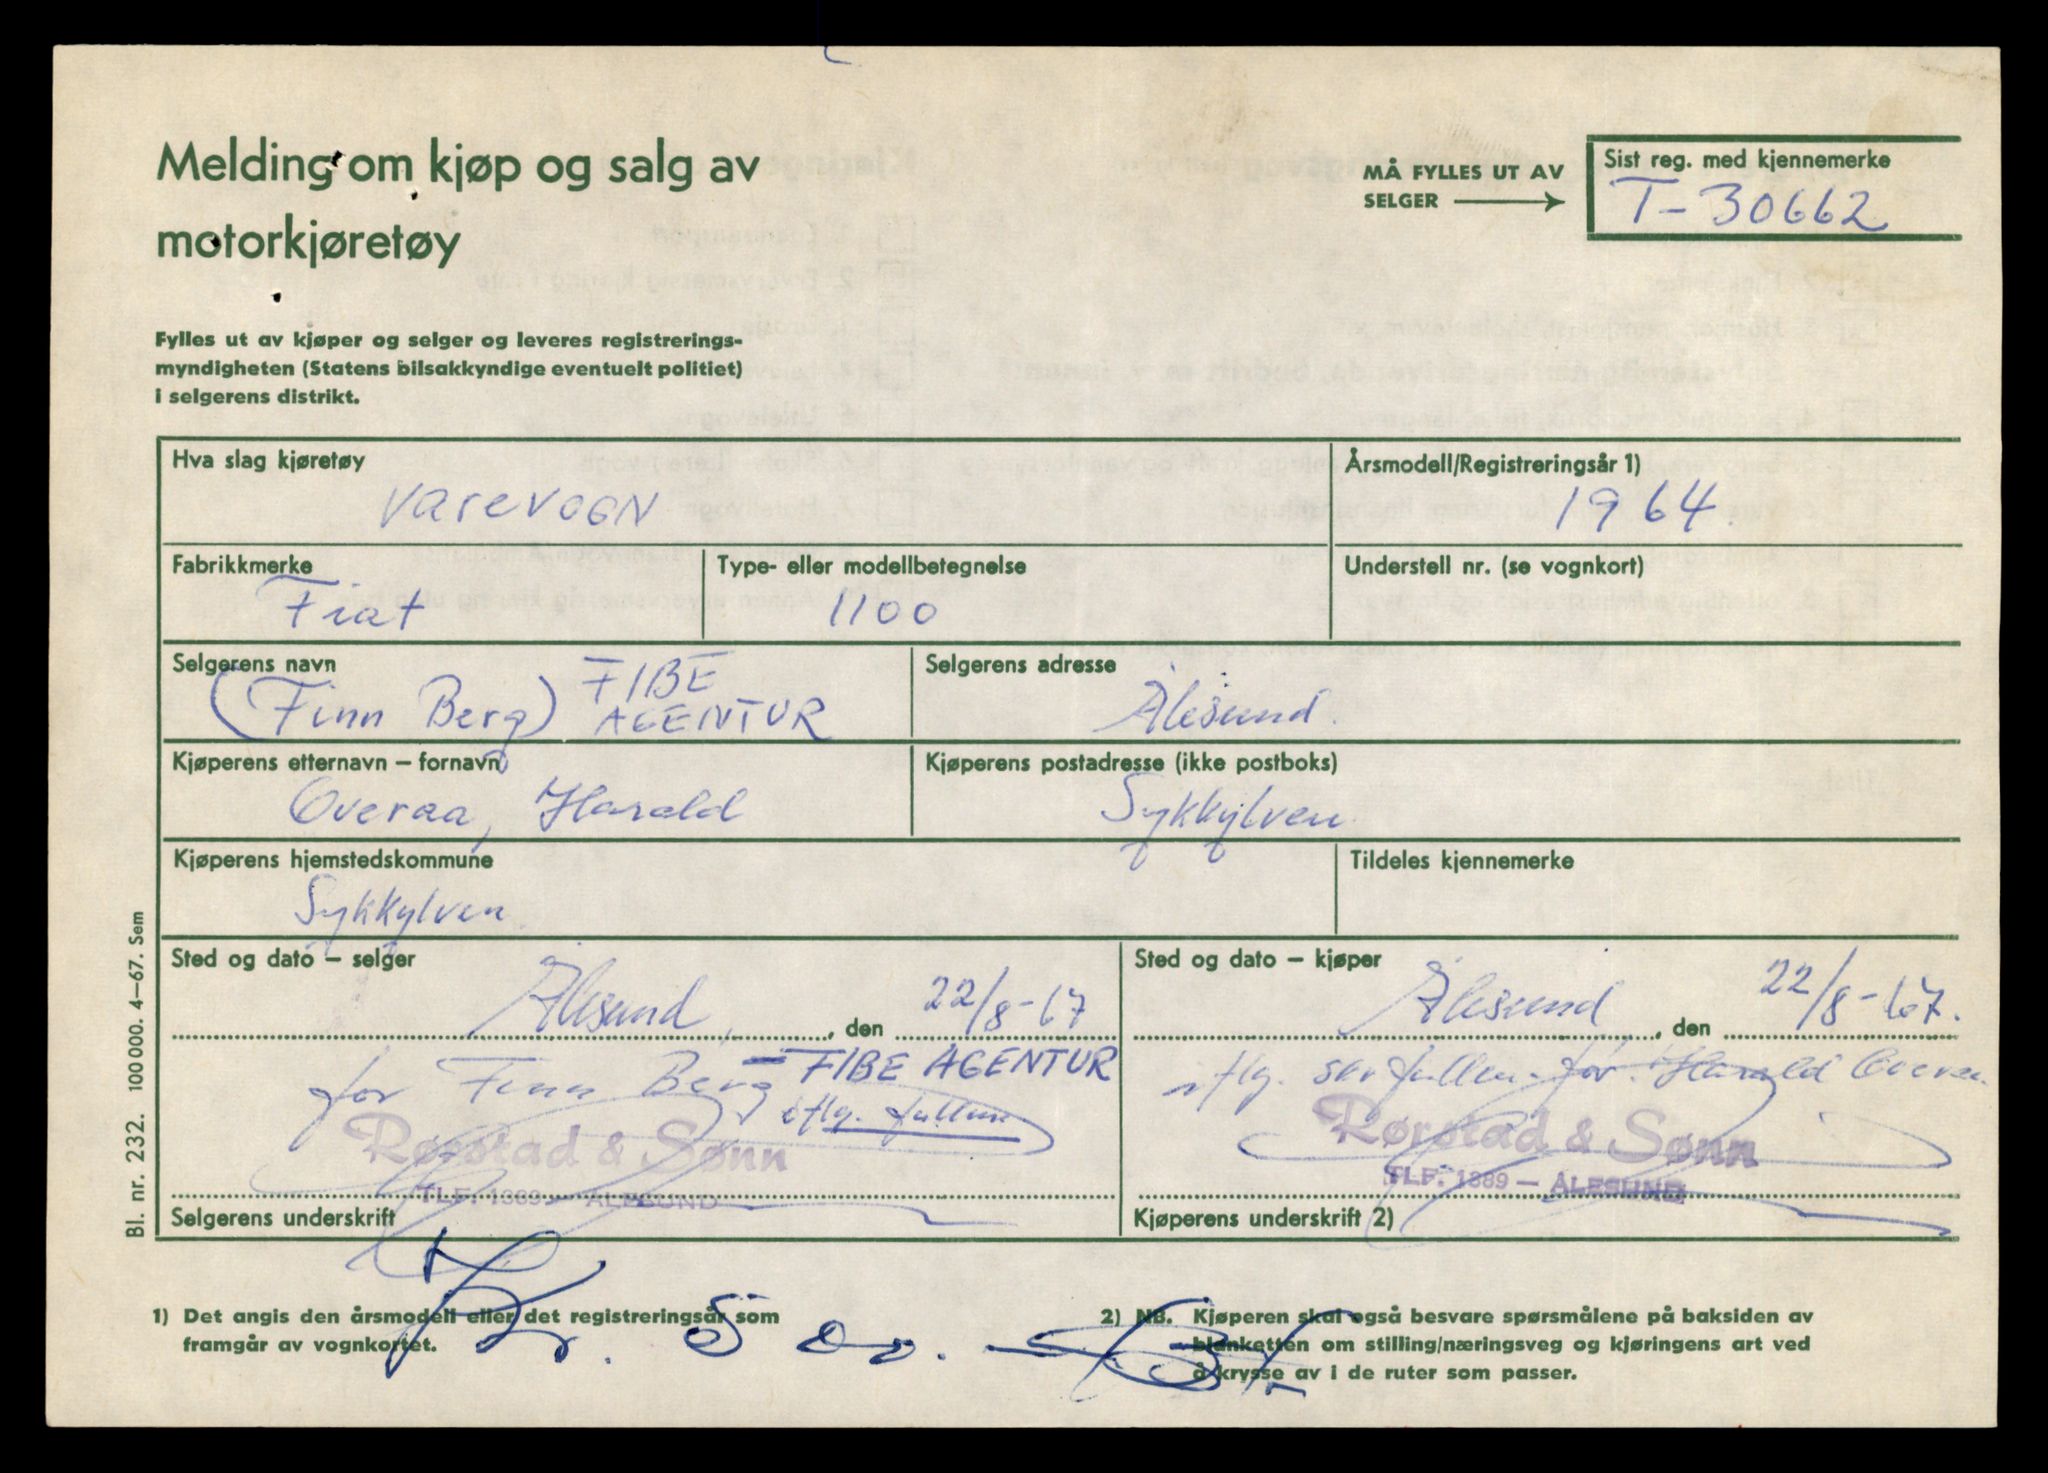 Melding om kjøp og salg av
motorkjøretøy
MÅ FYLLES UT AV
SELGER
Sist reg. med kjennemerke
T-30662
Fylles ut av kjøper og selger og leveres registrerings-
myndigheten (Statens bilsakkyndige eventuelt politiet)
i selgerens distrikt.
Hva slag kjøretøy
Varevogn
Årsmodell/Registreringsår 1)
1964
Fabrikkmerke
Fiat
Type- eller modellbetegnelse
1100
Understell nr. (se vognkort)
Selgerens navn
(Finn Berg) FIBE
AGENTUR
Selgerens adresse
Ålesund.
Kjøperens etternavn – fornavn
Overaa, Harald
Kjøperens postadresse (ikke postboks)
Sykkylven
Kjøperens hjemstedskommune
Sykkylven
Tildeles kjennemerke
Sted og dato – selger
Ålesund, den 22/8-67
for Finn Berg - FIBE AGENTUR
iflg. fullm
Rørstad & Sønn
TLF. 1389 — ÅLESUND
Selgerens underskrift
Sted og dato – kjøper
Ålesund, den 22/8-67.
iflg. skr fullm. for Harald Overaa
Rørstad & Sønn
TLF. 1389 — ÅLESUND
Kjøperens underskrift 2)
Bl. nr. 232. 100 000. 4–67. Sem
1) Det angis den årsmodell eller det registreringsår som
framgår av vognkortet.
2) NB. Kjøperen skal også besvare spørsmålene på baksiden av
blanketten om stilling/næringsveg og kjøringens art ved
å krysse av i de ruter som passer.
Kr. 5